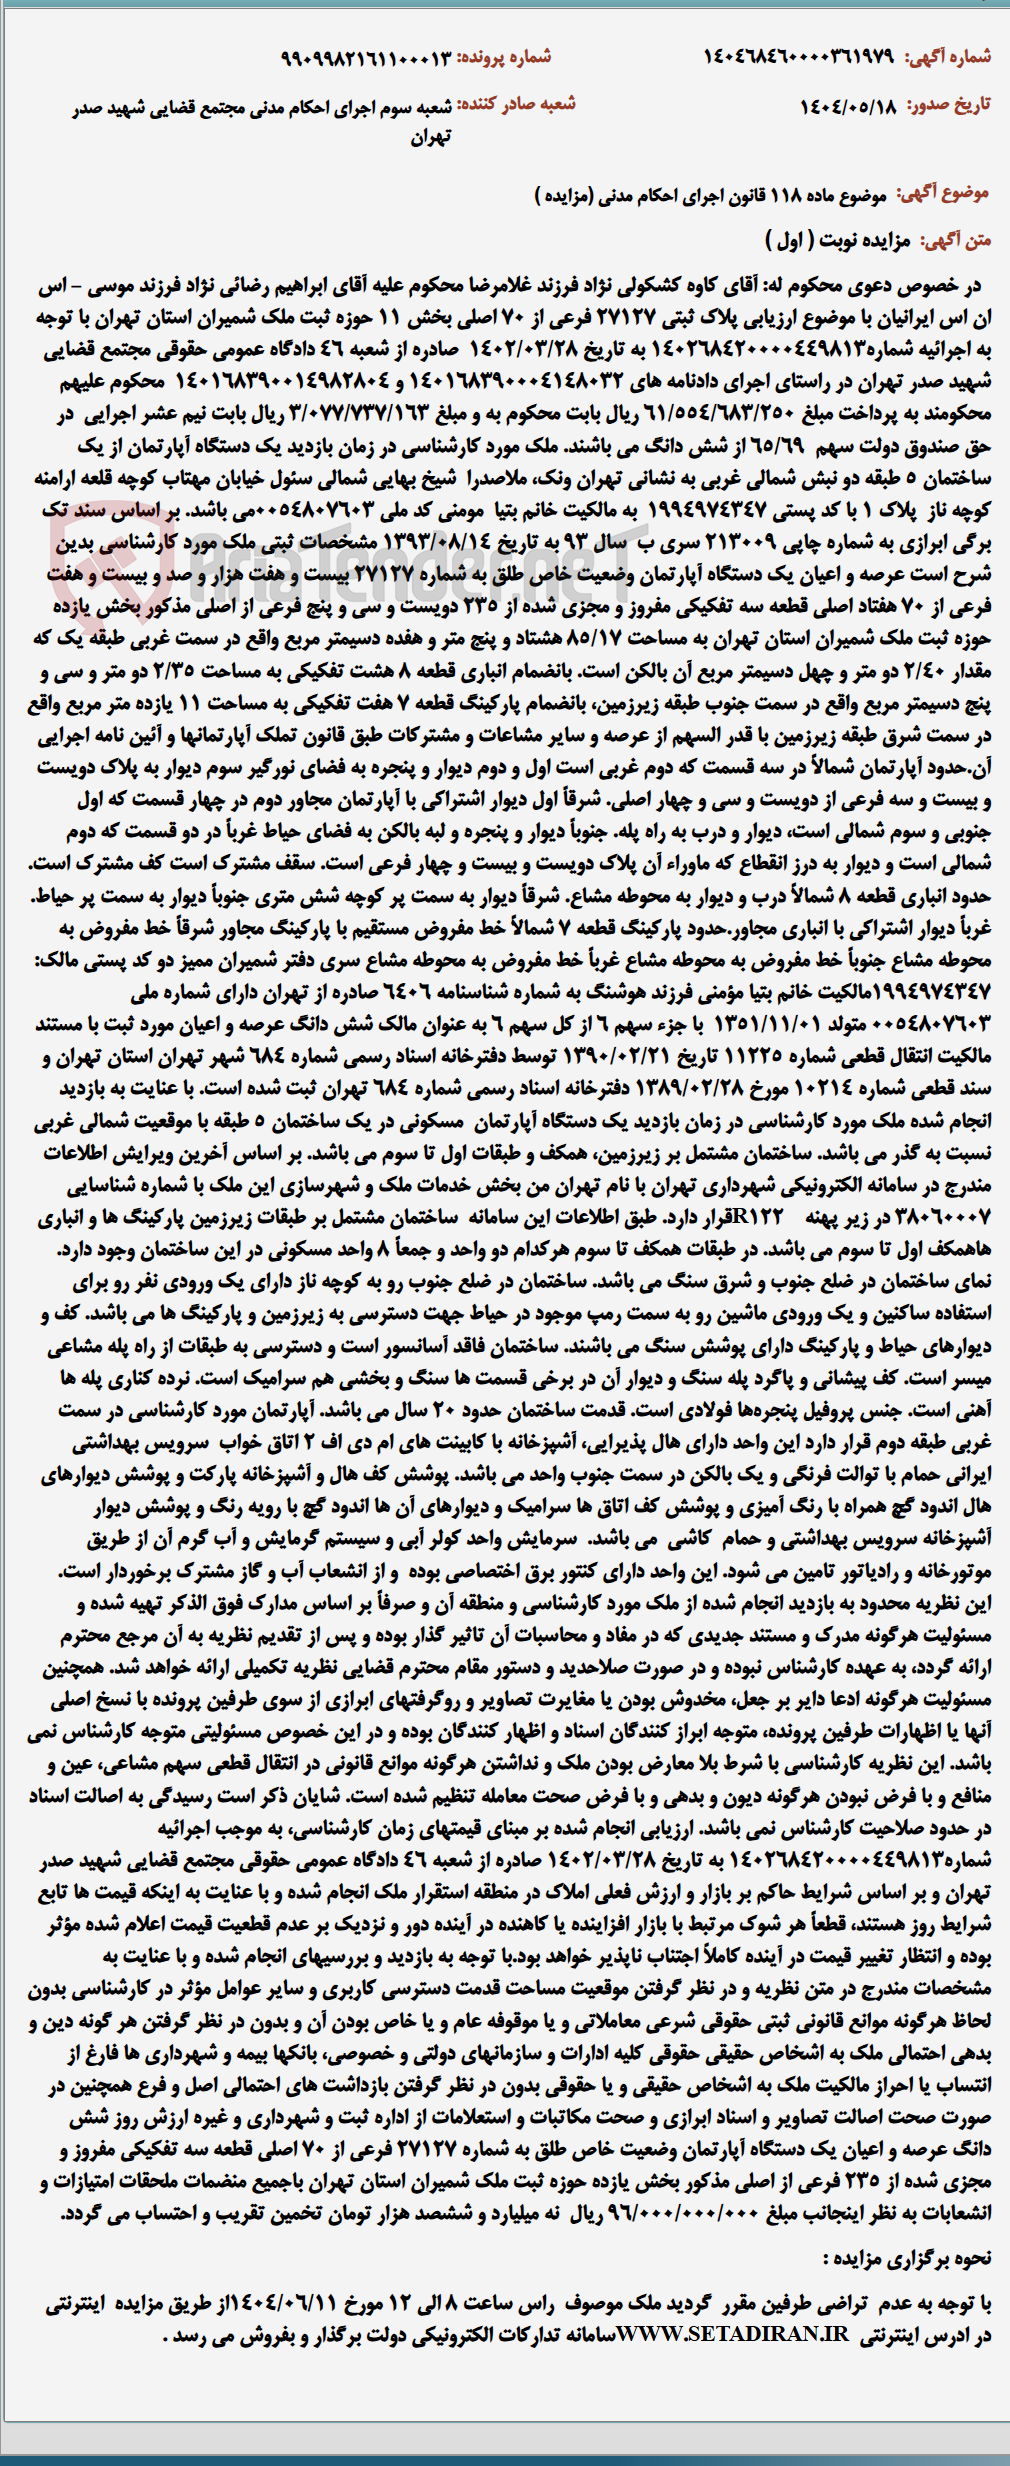 شماره آگهی: ۱۴۰۴۶۸۴۶۰۰۰۰۳۶۱۹۷۹ شماره پرونده: ۹۹۰۹۹۸۲۱۶۱۱۰۰۰۱۳
تاریخ صدور: ۱۴۰۴/۰۵/۱۸ شعبه صادر کننده: شعبه سوم اجرای احکام مدنی مجتمع قضایی شهید صدر
تهران
موضوع آگهی: موضوع ماده ۱۱۸ قانون اجرای احکام مدنی (مزایده )
متن آگهی: مزایده نوبت ( اول )
در خصوص دعوی محکوم له: آقای کاوه کشکولی نژاد فرزند غلامرضا محکوم علیه آقای ابراهیم رضائی نژاد فرزند موسی – اس
ان اس ایرانیان با موضوع ارزیابی پلاک ثبتی ۲۷۱۲۷ فرعی از ۷۰ اصلی بخش ۱۱ حوزه ثبت ملک شمیران استان تهران با توجه
به اجرائیه شماره۱۴۰۲۶۸۴۲۰۰۰۰۴۴۹۸۱۳ به تاریخ ۱۴۰۲/۰۳/۲۸ صادره از شعبه ۴۶ دادگاه عمومی حقوقی مجتمع قضایی
شهید صدر تهران در راستای اجرای دادنامه های ۱۴۰۱۶۸۳۹۰۰۰۴۱۴۸۰۳۲ و ۱۴۰۱۶۸۳۹۰۰۱۴۹۸۲۸۰۴ محکوم علیهم
محکومند به پرداخت مبلغ ۶۱/۵۵۴/۶۸۳/۲۵۰ ریال بابت محکوم به و مبلغ ۳/۰۷۷/۷۳۷/۱۶۳ ریال بابت نیم عشر اجرایی در
حق صندوق دولت سهم ۶۵/۶۹ از شش دانگ می باشند. ملک مورد کارشناسی در زمان بازدید یک دستگاه آپارتمان از یک
ساختمان ۵ طبقه دو نبش شمالی غربی به نشانی تهران ونک، ملاصدرا شیخ بهایی شمالی سئول خیابان مهتاب کوچه قلعه ارامنه
کوچه ناز پلاک ۱ با کد پستی ۱۹۹۴۹۷۴۳۴۷ به مالکیت خانم بتیا مومنی کد ملی ۰۰۵۴۸۰۷۶۰۳می باشد. بر اساس سند تک
برگی ابرازی به شماره چاپی ۲۱۳۰۰۹ سری ب سال ۹۳ به تاریخ ۱۳۹۳/۰۸/۱۴ مشخصات ثبتی ملک مورد کارشناسی بدین
شرح است عرصه و اعیان یک دستگاه آپارتمان وضعیت خاص طلق به شماره ۲۷۱۲۷ بیست و هفت هزار و صد و بیست و هفت
فرعی از ۷۰ هفتاد اصلی قطعه سه تفکیکی مفروز و مجزی شده از ۲۳۵ دویست و سی و پنج فرعی از اصلی مذکور بخش یازده
حوزه ثبت ملک شمیران استان تهران به مساحت ۸۵/۱۷ هشتاد و پنج متر و هفده دسیمتر مربع واقع در سمت غربی طبقه یک که
مقدار ۲/۴۰ دو متر و چهل دسیمتر مربع آن بالکن است. بانضمام انباری قطعه ۸ هشت تفکیکی به مساحت ۲/۳۵ دو متر و سی و
پنج دسیمتر مربع واقع در سمت جنوب طبقه زیرزمین، بانضمام پارکینگ قطعه ۷ هفت تفکیکی به مساحت ۱۱ یازده متر مربع واقع
در سمت شرق طبقه زیرزمین با قدر السهم از عرصه و سایر مشاعات و مشترکات طبق قانون تملک آپارتمانها و آئین نامه اجرایی
آن.حدود آپارتمان شمالاً در سه قسمت که دوم غربی است اول و دوم دیوار و پنجره به فضای نورگیر سوم دیوار به پلاک دویست
و بیست و سه فرعی از دویست و سی و چهار اصلی. شرقاً اول دیوار اشتراکی با آپارتمان مجاور دوم در چهار قسمت که اول
جنوبی و سوم شمالی است، دیوار و درب به راه پله. جنوباً دیوار و پنجره و لبه بالکن به فضای حیاط غرباً در دو قسمت که دوم
شمالی است و دیوار به درز انقطاع که ماوراء آن پلاک دویست و بیست و چهار فرعی است. سقف مشترک است کف مشترک است.
حدود انباری قطعه ۸ شمالاً درب و دیوار به محوطه مشاع. شرقاً دیوار به سمت پر کوچه شش متری جنوباً دیوار به سمت پر حیاط.
غرباً دیوار اشتراکی با انباری مجاور.حدود پارکینگ قطعه ۷ شمالاً خط مفروض مستقیم با پارکینگ مجاور شرقاً خط مفروض به
محوطه مشاع جنوباً خط مفروض به محوطه مشاع غرباً خط مفروض به محوطه مشاع سری دفتر شمیران ممیز دو کد پستی مالک:
۱۹۹۴۹۷۴۳۴۷مالکیت خانم بتیا مؤمنی فرزند هوشنگ به شماره شناسنامه ۶۴۰۶ صادره از تهران دارای شماره ملی
۰۰۵۴۸۰۷۶۰۳ متولد ۱۳۵۱/۱۱/۰۱ با جزء سهم ۶ از کل سهم ۶ به عنوان مالک شش دانگ عرصه و اعیان مورد ثبت با مستند
مالکیت انتقال قطعی شماره ۱۱۲۲۵ تاریخ ۱۳۹۰/۰۲/۲۱ توسط دفترخانه اسناد رسمی شماره ۶۸۴ شهر تهران استان تهران و
سند قطعی شماره ۱۰۲۱۴ مورخ ۱۳۸۹/۰۲/۲۸ دفترخانه اسناد رسمی شماره ۶۸۴ تهران ثبت شده است. با عنایت به بازدید
انجام شده ملک مورد کارشناسی در زمان بازدید یک دستگاه آپارتمان مسکونی در یک ساختمان ۵ طبقه با موقعیت شمالی غربی
نسبت به گذر می باشد. ساختمان مشتمل بر زیرزمین، همکف و طبقات اول تا سوم می باشد. بر اساس آخرین ویرایش اطلاعات
مندرج در سامانه الکترونیکی شهرداری تهران با نام تهران من بخش خدمات ملک و شهرسازی این ملک با شماره شناسایی
۳۸۰۶۰۰۰۷ در زیر پهنه R۱۲۲قرار دارد. طبق اطلاعات این سامانه ساختمان مشتمل بر طبقات زیرزمین پارکینگ ها و انباری
هاهمکف اول تا سوم می باشد. در طبقات همکف تا سوم هرکدام دو واحد و جمعاً ۸ واحد مسکونی در این ساختمان وجود دارد.
نمای ساختمان در ضلع جنوب و شرق سنگ می باشد. ساختمان در ضلع جنوب رو به کوچه ناز دارای یک ورودی نفر رو برای
استفاده ساکنین و یک ورودی ماشین رو به سمت رمپ موجود در حیاط جهت دسترسی به زیرزمین و پارکینگ ها می باشد. کف و
دیوارهای حیاط و پارکینگ دارای پوشش سنگ می باشند. ساختمان فاقد آسانسور است و دسترسی به طبقات از راه پله مشاعی
میسر است. کف پیشانی و پاگرد پله سنگ و دیوار آن در برخی قسمت ها سنگ و بخشی هم سرامیک است. نرده کناری پله ها
آهنی است. جنس پروفیل پنجره‌ها فولادی است. قدمت ساختمان حدود ۲۰ سال می باشد. آپارتمان مورد کارشناسی در سمت
غربی طبقه دوم قرار دارد این واحد دارای هال پذیرایی، آشپزخانه با کابینت های ام دی اف ۲ اتاق خواب سرویس بهداشتی
ایرانی حمام با توالت فرنگی و یک بالکن در سمت جنوب واحد می باشد. پوشش کف هال و آشپزخانه پارکت و پوشش دیوارهای
هال اندود گچ همراه با رنگ آمیزی و پوشش کف اتاق ها سرامیک و دیوارهای آن ها اندود گچ با رویه رنگ و پوشش دیوار
آشپزخانه سرویس بهداشتی و حمام کاشی می باشد. سرمایش واحد کولر آبی و سیستم گرمایش و آب گرم آن از طریق
موتورخانه و رادیاتور تامین می شود. این واحد دارای کنتور برق اختصاصی بوده و از انشعاب آب و گاز مشترک برخوردار است.
این نظریه محدود به بازدید انجام شده از ملک مورد کارشناسی و منطقه آن و صرفاً بر اساس مدارک فوق الذکر تهیه شده و
مسئولیت هرگونه مدرک و مستند جدیدی که در مفاد و محاسبات آن تاثیر گذار بوده و پس از تقدیم نظریه به آن مرجع محترم
ارائه گردد، به عهده کارشناس نبوده و در صورت صلاحدید و دستور مقام محترم قضایی نظریه تکمیلی ارائه خواهد شد. همچنین
مسئولیت هرگونه ادعا دایر بر جعل، مخدوش بودن یا مغایرت تصاویر و روگرفتهای ابرازی از سوی طرفین پرونده با نسخ اصلی
آنها یا اظهارات طرفین پرونده، متوجه ابراز کنندگان اسناد و اظهار کنندگان بوده و در این خصوص مسئولیتی متوجه کارشناس نمی
باشد. این نظریه کارشناسی با شرط بلا معارض بودن ملک و نداشتن هرگونه موانع قانونی در انتقال قطعی سهم مشاعی، عین و
منافع و با فرض نبودن هرگونه دیون و بدهی و با فرض صحت معامله تنظیم شده است. شایان ذکر است رسیدگی به اصالت اسناد
در حدود صلاحیت کارشناس نمی باشد. ارزیابی انجام شده بر مبنای قیمتهای زمان کارشناسی، به موجب اجرائیه
شماره۱۴۰۲۶۸۴۲۰۰۰۰۴۴۹۸۱۳ به تاریخ ۱۴۰۲/۰۳/۲۸ صادره از شعبه ۴۶ دادگاه عمومی حقوقی مجتمع قضایی شهید صدر
تهران و بر اساس شرایط حاکم بر بازار و ارزش فعلی املاک در منطقه استقرار ملک انجام شده و با عنایت به اینکه قیمت ها تابع
شرایط روز هستند، قطعاً هر شوک مرتبط با بازار افزاینده یا کاهنده در آینده دور و نزدیک بر عدم قطعیت قیمت اعلام شده مؤثر
بوده و انتظار تغییر قیمت در آینده کاملاً اجتناب ناپذیر خواهد بود.با توجه به بازدید و بررسیهای انجام شده و با عنایت به
مشخصات مندرج در متن نظریه و در نظر گرفتن موقعیت مساحت قدمت دسترسی کاربری و سایر عوامل مؤثر در کارشناسی بدون
لحاظ هرگونه موانع قانونی ثبتی حقوقی شرعی معاملاتی و یا موقوفه عام و یا خاص بودن آن و بدون در نظر گرفتن هر گونه دین و
بدهی احتمالی ملک به اشخاص حقیقی حقوقی کلیه ادارات و سازمانهای دولتی و خصوصی، بانکها بیمه و شهرداری ها فارغ از
انتساب یا احراز مالکیت ملک به اشخاص حقیقی و یا حقوقی بدون در نظر گرفتن بازداشت های احتمالی اصل و فرع همچنین در
صورت صحت اصالت تصاویر و اسناد ابرازی و صحت مکاتبات و استعلامات از اداره ثبت و شهرداری و غیره ارزش روز شش
دانگ عرصه و اعیان یک دستگاه آپارتمان وضعیت خاص طلق به شماره ۲۷۱۲۷ فرعی از ۷۰ اصلی قطعه سه تفکیکی مفروز و
مجزی شده از ۲۳۵ فرعی از اصلی مذکور بخش یازده حوزه ثبت ملک شمیران استان تهران باجمیع منضمات ملحقات امتیازات و
انشعابات به نظر اینجانب مبلغ ۹۶/۰۰۰/۰۰۰/۰۰۰ ریال نه میلیارد و ششصد هزار تومان تخمین تقریب و احتساب می گردد.
نحوه برگزاری مزایده :
با توجه به عدم تراضی طرفین مقرر گردید ملک موصوف راس ساعت ۸ الی ۱۲ مورخ ۱۴۰۴/۰۶/۱۱از طریق مزایده اینترنتی
در ادرس اینترنتی WWW.SETADIRAN.IRسامانه تدارکات الکترونیکی دولت برگذار و بفروش می رسد .
AriaTender.neT